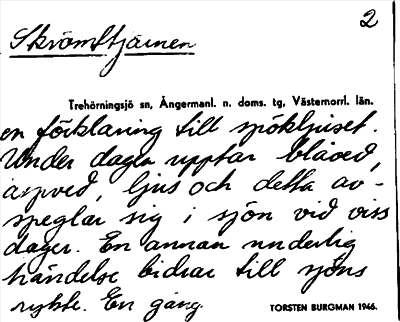 2
Skrämstjärnen
Trehörningsjö sn, Ångermanl. n. doms. tg, Västernorrl. län.
en förklaring till spökljuset.
Under dagen upptar blåved,
äspved, ljus och detta av-
speglar sig i sjön vid viss
dager. En annan underlig
händelse bidrar till sjöns
rykte. En gång
TORSTEN BURGMAN 1946.